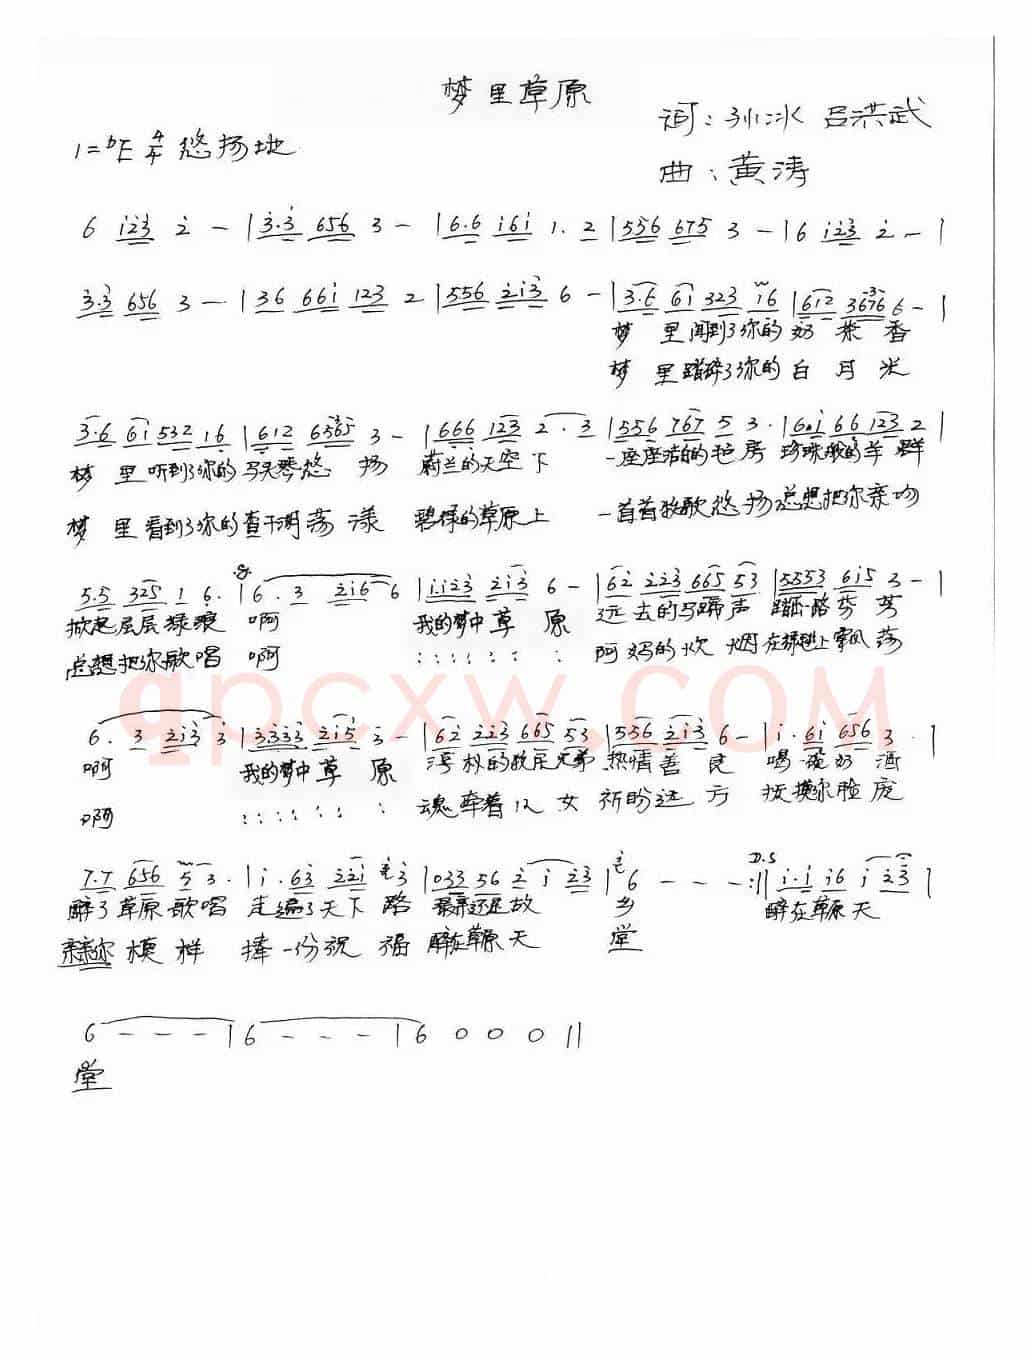 梦里草原
词：孙冰 吕洪武
1=♭E 4/4 悠扬地
曲：黄涛
6 123 2 - | 3·3 656 3 - | 6·6 161 1. 2 | 556 675 3 - | 6 123 2 - |
3·3 656 3 - | 36 661 123 2 | 556 213 6 - | 3·6 61 323 16 | 612 3676 6 - |
梦 里闻到了你的奶 茶 香
梦 里踏碎了你的白 月 光
3·6 61 532 16 | 612 6565 3 - | 666 123 2 . 3 | 556 767 5 3. | 6·1 66 123 2 |
梦 里听到了你的马头琴悠 扬 蔚兰的天空 下 一座座洁白的毡房 珍珠般的羊 群
梦 里看到了你的查干湖荡漾 碧绿的草原上 一首首牧歌悠扬总想把你亲吻
5·5 325 1 6. | 6 . 3 216 6 | 1·123 213 6 - | 62 223 665 53 | 5553 615 3 - |
掀起层层绿浪 啊 我的梦中草 原 远去的马蹄声 踏一路芬 芳
总想把你歌唱 啊 : : : : : : : 阿妈的炊 烟在 上 荡
6 . 3 213 3 | 3333 215 3 - | 62 223 665 53 | 556 213 6 - | 1 . 61 656 3 . |
啊 我的梦中草 原 淳朴的牧民兄弟 热情善 良 喝一碗奶 酒
啊 : : : : : : : 魂牵着儿 女 祈盼远 方 抚摸你脸庞
7·7 656 5 3. | 1 . 63 221 3 | 033 56 2 1 23 | 6 - - - :|| D.S 1·1 16 1 23 |
醉了草原歌唱 走遍了天下 路 最亲还是故 乡 醉在草原天
亲亲你 模 样 捧一份祝 福 醉在草原天 堂
6 - - - | 6 - - - | 6 0 0 0 ||
堂
qpcxw.COM